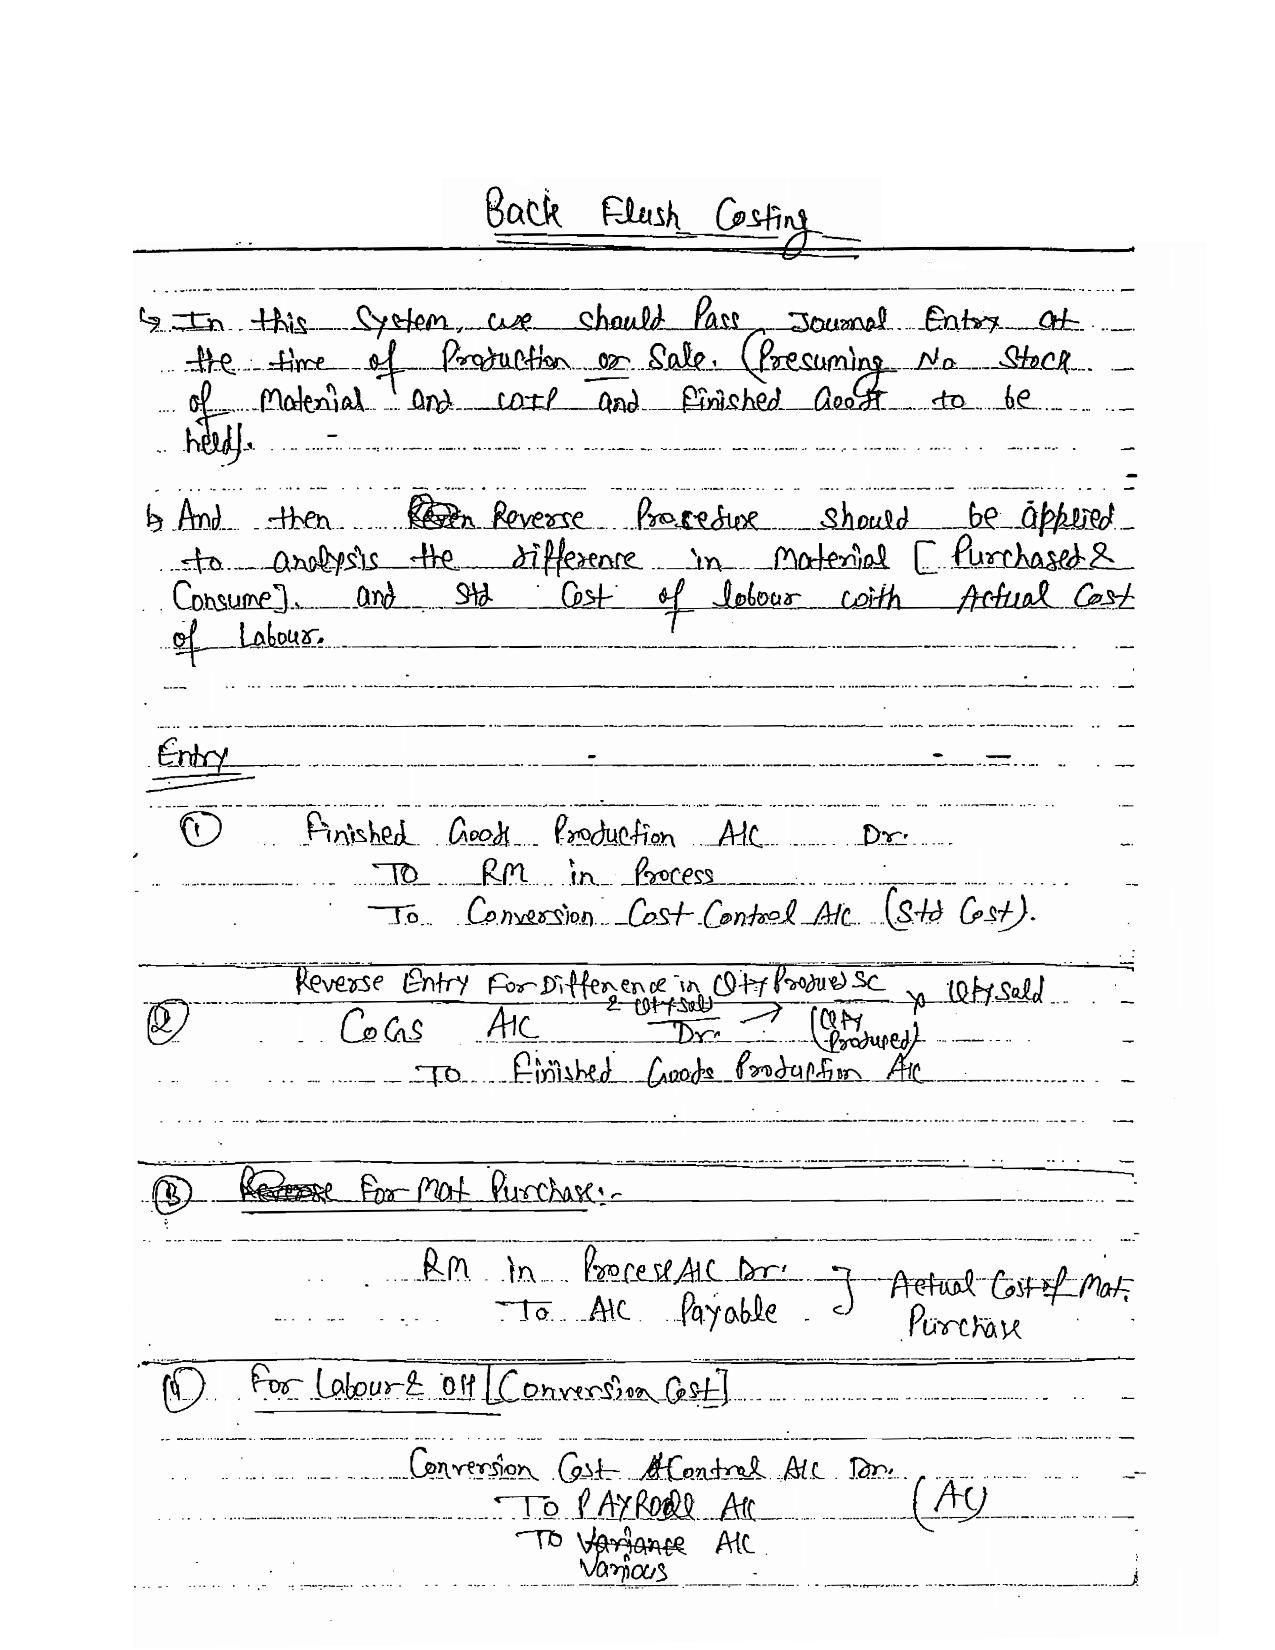 Back Flush Costing
↳ In this System, we should Pass Journal Entry at
the time of Production or Sale. (Presuming No Stock
of Material and WIP and Finished Goods to be
held).
↳ And then Reverse Procedure should be applied
to analysis the difference in Material [Purchased &
Consume]. and Std Cost of labour with Actual Cost
of Labour.
Entry
① Finished Goods Production A/C Dr.
To RM in Process
To Conversion Cost Control A/C (Std Cost).
Reverse Entry For Difference in Qty Produced SC × Qty Sold
& Qty Sold
② COGS A/C Dr. → (Qty Produced)
To Finished Goods Production A/C
③ For Mat Purchase:-
RM in Process A/C Dr. } Actual Cost of Mat.
To A/C Payable. Purchase
④ For Labour & OH [Conversion Cost]
Conversion Cost Control A/C Dr.
To PAYROLL A/C (AC)
To Variance A/C
Various